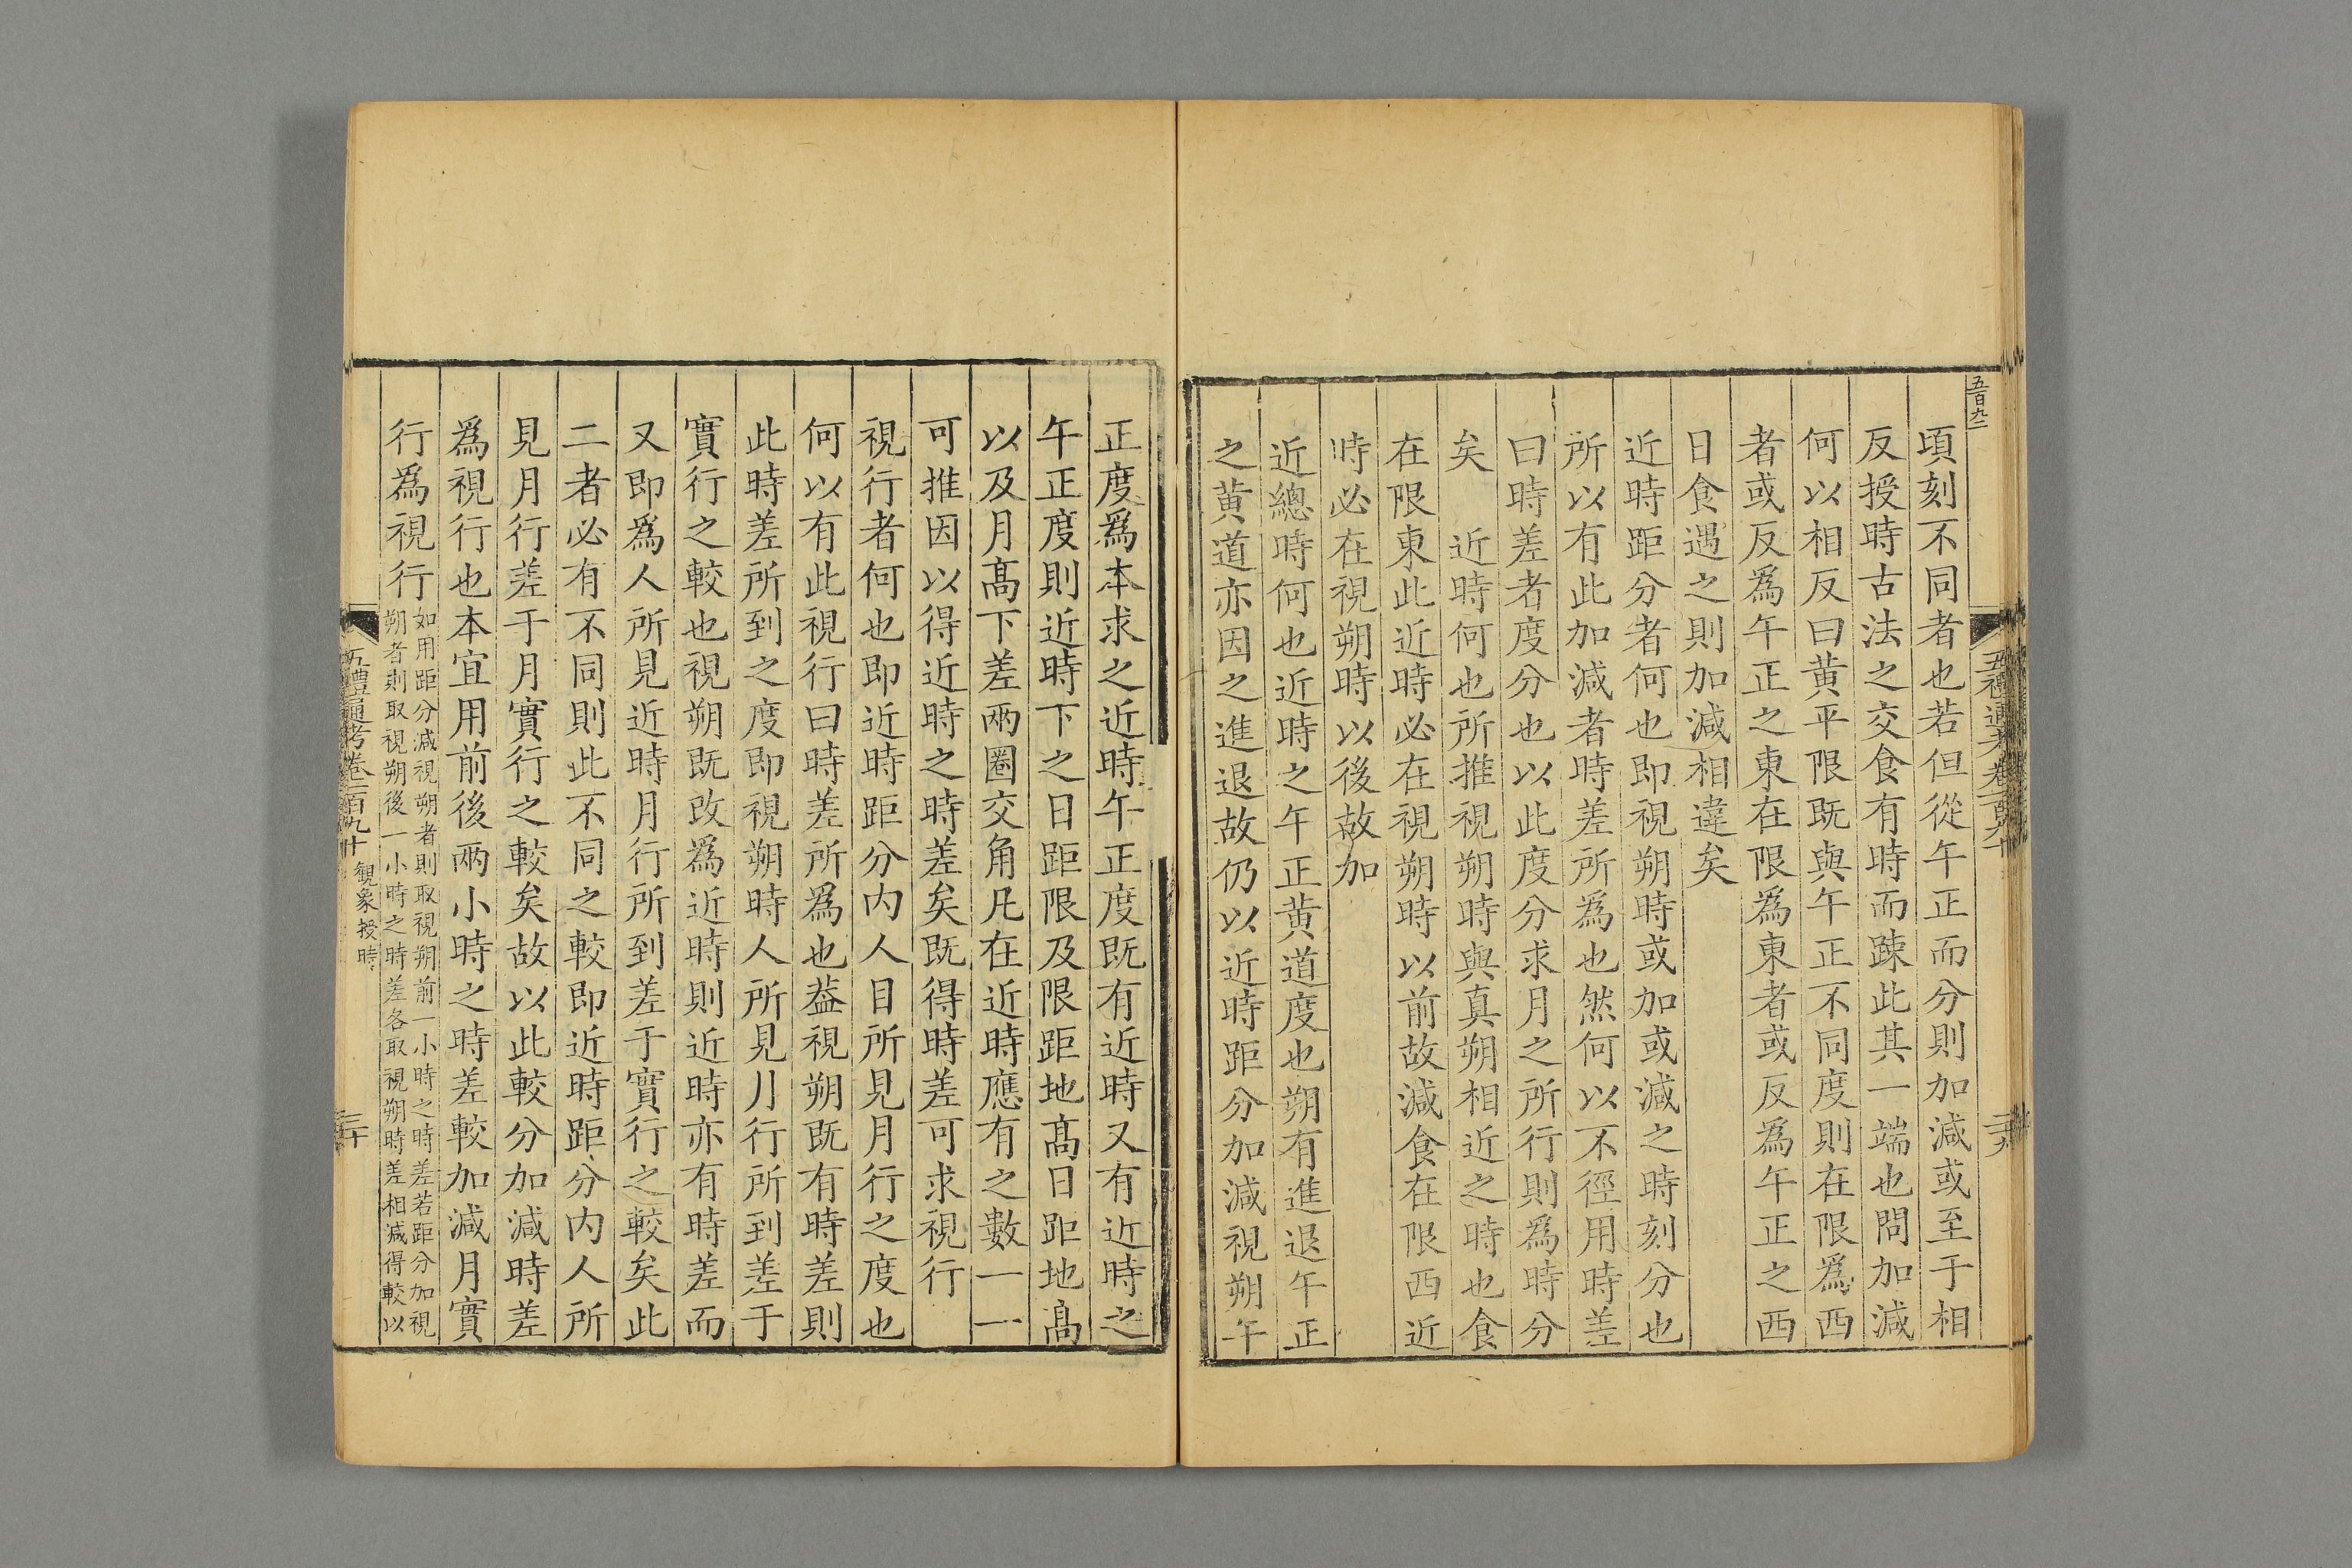 五百九二
頃刻不同者也若但從午正而分則加減或至于相
反授時古法之交食有時而踈此其一端也問加減
何以相反曰黄平限既與午正不同度則在限為西
者或反為午正之東在限為東者或反為午正之西
日食遇之則加減相違矣
近時距分者何也即視朔時或加或減之時刻分也
所以有此加減者時差所為也然何以不徑用時差
曰時差者度分也以此度分求月之所行則為時分
矣　近時何也所推視朔時與真朔相近之時也食
在限東此近時必在視朔時以前故減食在限西近
時必在視朔時以後故加
近總時何也近時之午正黄道度也朔有進退午正
之黄道亦因之進退故仍以近時距分加減視朔午
正度爲本求之近時午正度既有近時又有近時之
午正度則近時下之日距限及限距地髙日距地髙
以及月髙下差兩圈交角凡在近時應有之數一一
可推因以得近時之時差矣既得時差可求視行
視行者何也即近時距分内人目所見月行之度也
何以有此視行曰時差所爲也葢視朔既有時差則
此時差所到之度即視朔時人所見月行所到差于
實行之較也視朔既改爲近時則近時亦有時差而
又即爲人所見近時月行所到差于實行之較矣此
二者必有不同則此不同之較即近時距分内人所
見月行差于月實行之較矣故以此較分加減時差
爲視行也本宜用前後兩小時之時差較加減月實
行爲視行如用距分減視朔者則取視朔前一小時之時差若距分加視
朔者則取視朔後一小時之時差各取視朔時差相減得較以
五禮通考卷一百九十　觀象授時　三十